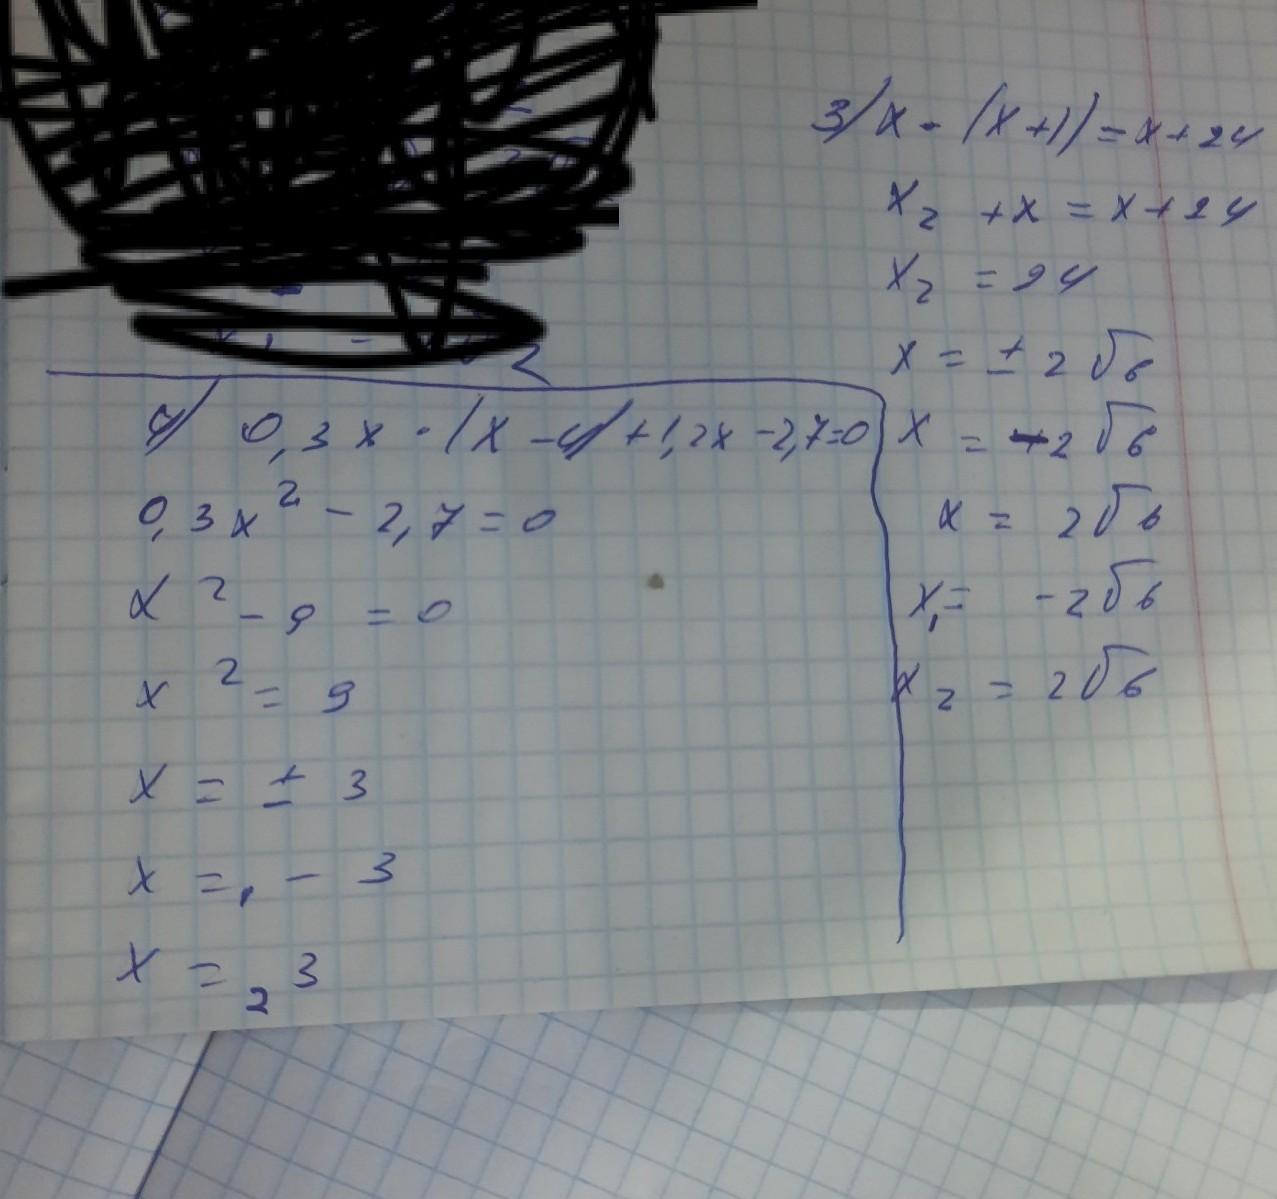 3) x · (x+1) = x+24
x₂ + x = x + 24
x₂ = 24
x = ± 2√6
x = -2√6
x = 2√6
x₁ = -2√6
x₂ = 2√6
4) 0,3x · (x-4) + 1,2x - 2,7=0
0,3x² - 2,7 = 0
x² - 9 = 0
x² = 9
x = ± 3
x =₁ - 3
x =₂ 3